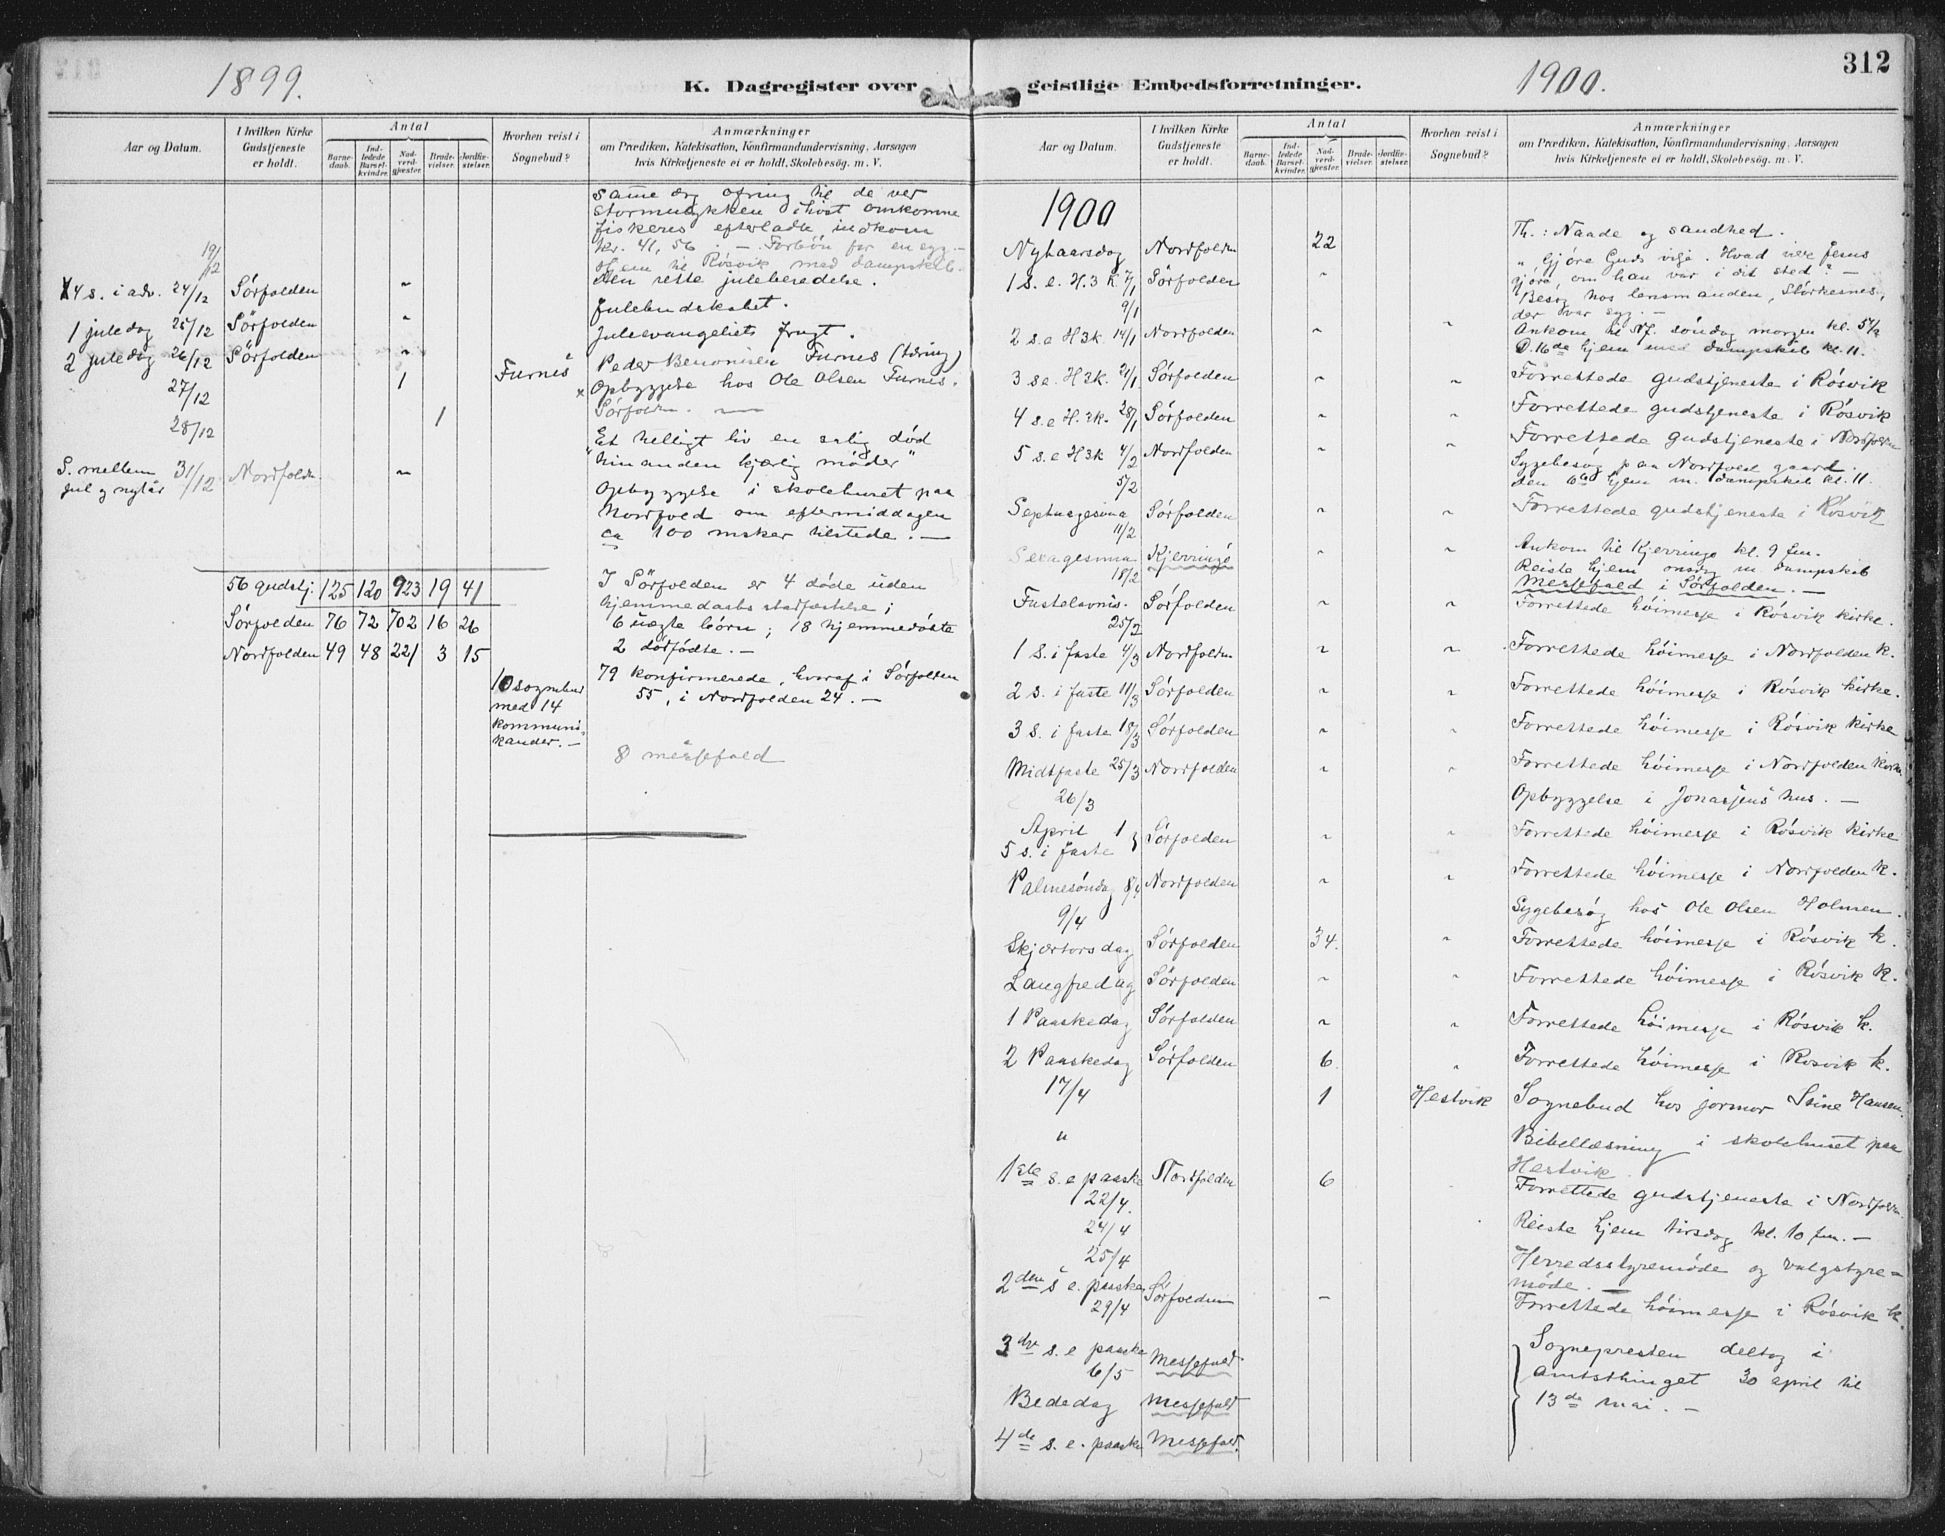 1899.
K. Dagregister over
Aar og Datum.
I hvilken Kirke Gudstjeneste er holdt.
Antal
Barnedaab.
Indledede Barselkvinder.
Nadverdgjæster.
Brudevielser.
Jordfæstelser.
Hvorhen reist i Sognebud?
Anmærkninger
om Prædiken, Katekisation, Konfirmandundervisning, Aarsagen
hvis Kirketjeneste ei er holdt, Skolebesøg. m. V.
Samme dag ofring til de ved
stormulykken i høst omkomne
fiskeres efterladte, indkom
kr. 41,56. — Forbön for en syg. —
19/12 Hjem til Rösvik med dampskib.
4 s. i adv. 24/12 Sörfolden " Den rette juleberedelse.
Julebudskabet.
1 juledag 25/12 Sörfolden " Juleevangeliets frugt.
2 juledag 26/12 Sörfolden "
27/12 1 Furnes Peder Benonisen Furnes (tæring)
Opbyggelse hos Ole Olsen Furnes.
Sörfolden. —
28/12 1
Et helligt liv en salig död
S. mellem jul og nytår 31/12 Nordfolden " "hinanden kjærlig møder"
Opbyggelse i skolehuset paa
Nordfold om eftermiddagen
ca 100 msker tilstede. —
56 gudstj. 125 120 923 19 41 I Sörfolden er 4 döde uden
hjemmedaabs stadfæstelse;
Sørfolden 76 72 702 16 26 6 uægte börn; 18 hjemmedöbte
Nordfolden 49 48 221 3 15 2 dödfödte. —
10 sognebud 79 konfirmerede, hvoraf i Sørfolden
med 14 55, i Nordfolden 24. —
kommunikander. —
8 messefald
312
geistlige Embedsforretninger.
1900.
Aar og Datum.
I hvilken Kirke Gudstjeneste er holdt.
Antal
Barnedaab.
Indledede Barselkvinder.
Nadverdgjæster.
Brudevielser.
Jordfæstelser.
Hvorhen reist i Sognebud?
Anmærkninger
om Prædiken, Katekisation, Konfirmandundervisning, Aarsagen
hvis Kirketjeneste ei er holdt, Skolebesøg. m. V.
1900
Nytaarsdag Nordfolden 22 Th.: Naade og sandhed.
1 s. e. H. 3 k. 7/1 Sörfolden " " Gjöre Guds vilje. Hvad vilde Jesus
gjöre, om han var i dit sted? —
9/1 Besøg hos lensmanden, Störkesnes,
der var syg. —
2 s. e H3k 14/1 Nordfolden " " Ankom til Nf. söndag morgen kl. 5 1/2
D. 16de hjem med dampskib kl. 11.
3 s e. H 3k. 21/1 Sørfolden " " Forrettede gudstjeneste i Rösvik
4 s. e H. 3k. 28/1 Sørfolden " " Forrettede gudstjeneste i Rösvik
5 s. e H3k 4/2 Nordfolden " " Forrettede gudstjeneste i Nordfolden
5/2 Sygebesög paa Nordfold gaard.
den 6te hjem m. dampskib kl. 11.
Septuagesima 11/2 Sørfolden " " Forrettede gudstjeneste i Rösvik
Sexagesima 18/2 Kjerringö " " Ankom til Kjerringö kl. 9 fm.
Reiste hjem onsdag m. dampskib
Messefald i Sørfolden. —
Fastelavns. 25/2 Sørfolden " " Forrettede höimesse i Rösvik kirke.
1 s. i faste 4/3 Nordfolden " " Forrettede höimesse i Nordfolden k.
2 s. i faste 11/3 Sørfolden " " Forrettede höimesse i Rösvik kirke.
3 s. i faste 18/3 Sørfolden " " Forrettede höimesse i Rösvik kirke
Midtfaste 25/3 Nordfolden " " Forrettede höimesse i Nordfolden kirke
26/3 Opbyggelse i Jonassens hus. —
April 1
5 s. i faste } Sørfolden " " Forrettede höimesse i Rösvik kirke
Palmesöndag 8/4 Nordfolden " " Forrettede höimesse i Nordfolden k.
9/4 Sygebesög hos Ole Olsen Holmen.
Skjærtorsdag Sörfolden 34. " Forrettede höimesse i Rösvik k.
Langfredag Sörfolden " " Forrettede höimesse i Rösvik k.
1 Paaskedag Sörfolden " " Forrettede höimesse i Rösvik k.
2 Paaskedag Sörfolden 6 " Forrettede höimesse i Rösvik k.
17/4 1 Hestvik Sognebud hos jormor Stine Hansen.
" Bibellæsning i skolehuset paa
Hestvik.
1ste s. e paaske 22/4. Nordfolden 6 Forrettede gudstjeneste i Nordfolden.
24/4 Reiste hjem tirsdag kl. 10 fm. —
25/4 Herredsstyremöde og valgstyre=
möde. —
2den s e. paaske 29/4 Sörfolden — Forrettede höimesse i Rösvik k.
3die s. e paaske 6/5 Messefald Sognepresten deltog i
amtsthinget 30 april til
Bededag Messefald 13de mai. —
4de s. e. paaske Messefald.